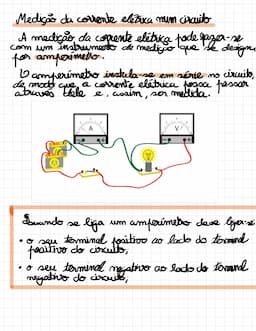 Medição da corrente elétrica num circuito
A medição da corrente elétrica pode fazer-se
com um instrumento de medição que se designa
por amperímetro.
O amperímetro instala-se em série no circuito,
de modo que a corrente elétrica possa passar
através dele e, assim, ser medida.
A
V
Quando se liga um amperímetro deve ligar-se
• o seu terminal positivo ao lado do terminal
positivo do circuito;
• o seu terminal negativo ao lado do terminal
negativo do circuito;